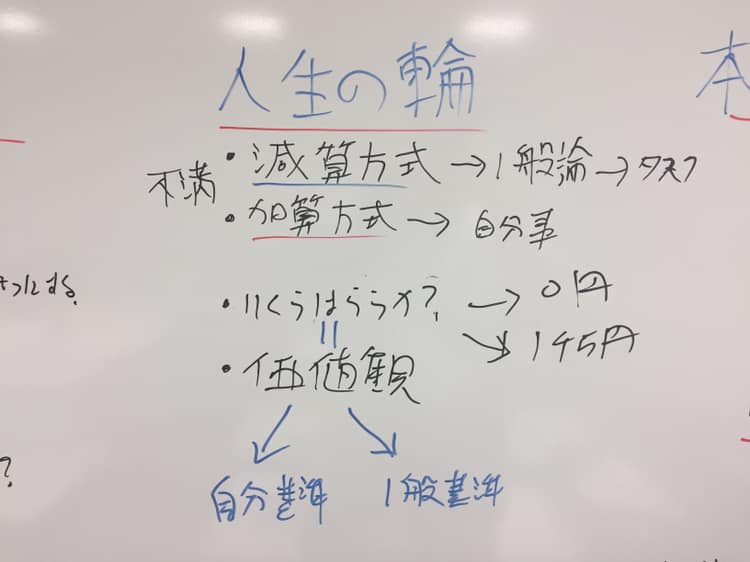 人生の輪
本
不満
・減算方式→1般論→タスク
・加算方式→自分事
・いくらはらうか？→0円
→145円
=
・価値観
自分基準 1般基準
？